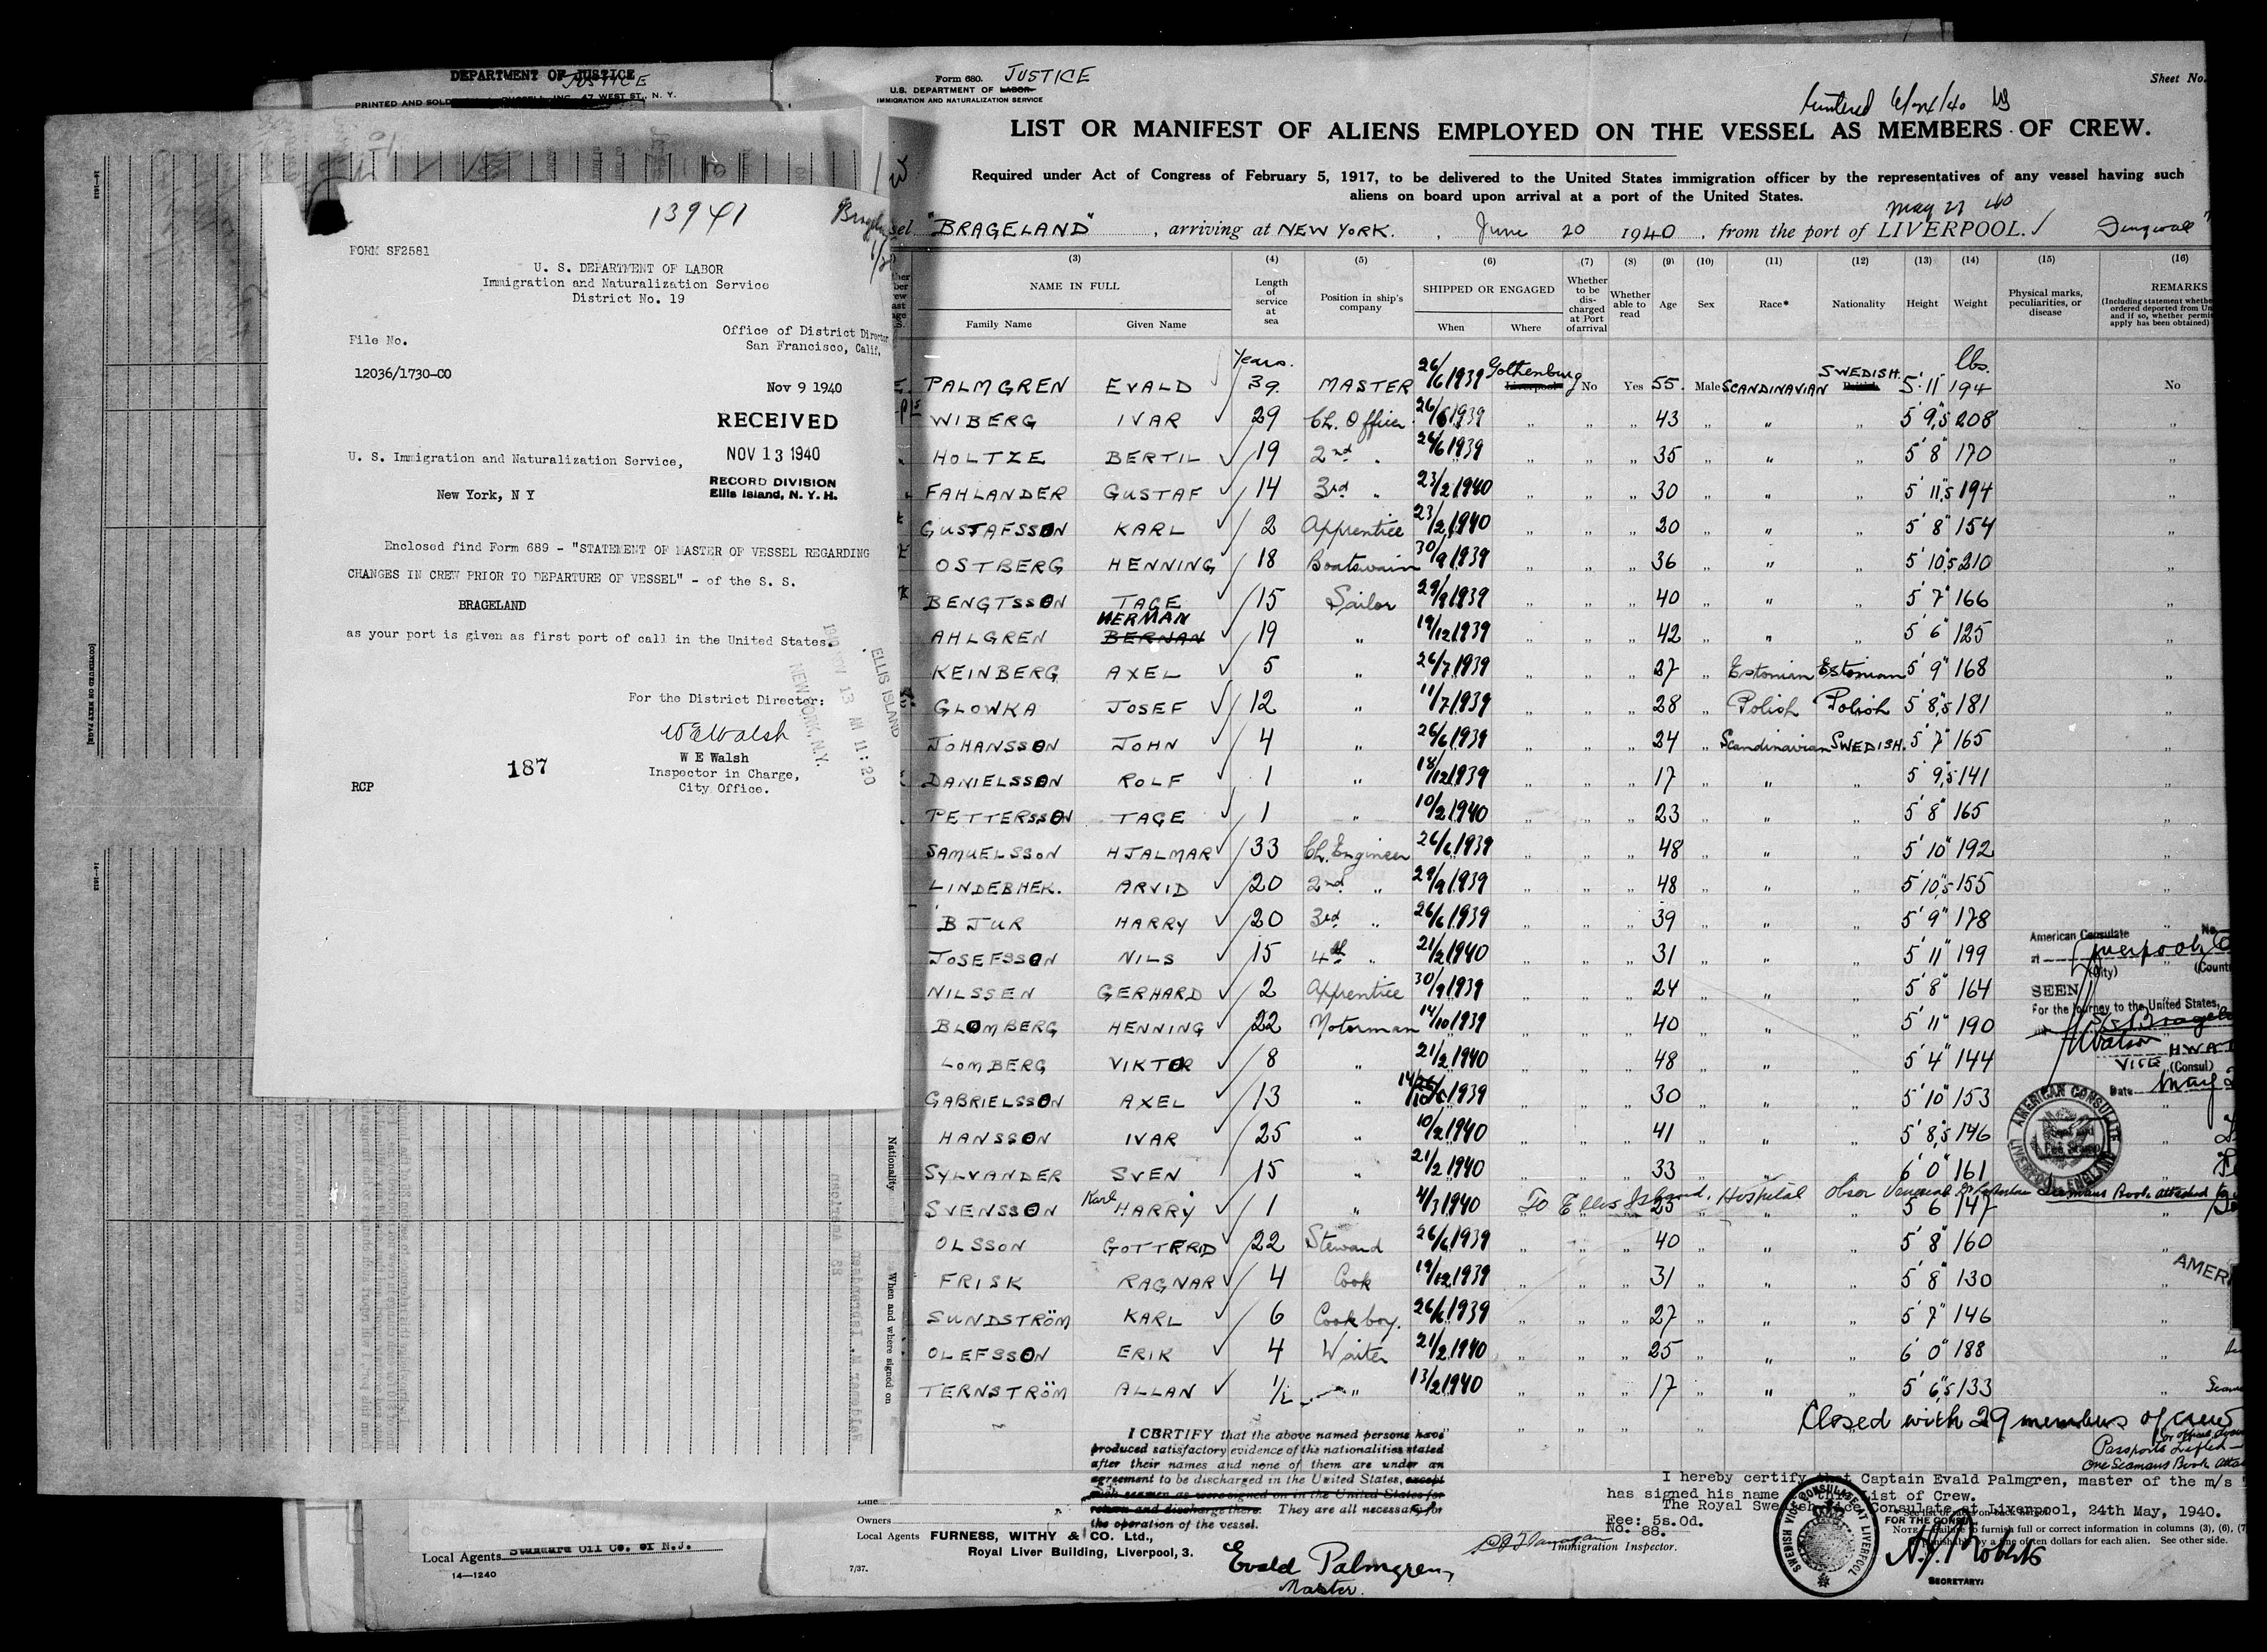 DEPARTMENT OF JUSTICE
JUSTICE
PRINTED AND SOLD 47 WEST ST., N. Y.
13941
FORM SF2581
U. S. DEPARTMENT OF LABOR
Immigration and Naturalization Service
District No. 19
Office of District Director
San Francisco, Calif.
File No.
12036/1730-CO
Nov 9 1940
RECEIVED
NOV 13 1940
RECORD DIVISION
Ellis Island, N. Y. H.
U. S. Immigration and Naturalization Service,
New York, N Y
Enclosed find Form 689 - "STATEMENT OF MASTER OF VESSEL REGARDING
CHANGES IN CREW PRIOR TO DEPARTURE OF VESSEL" - of the S. S.
BRAGELAND
as your port is given as first port of call in the United States.
For the District Director:
W E Walsh
W E Walsh
Inspector in Charge,
City Office.
187
RCP
ELLIS ISLAND
13 AM 11:20
NEW YORK, N.Y.
[CONTINUED ON NEXT PAGE]
Nationality
When and where signed on
Local Agents Standard Oil Co. of N.J.
14—1240
Form 680. JUSTICE
U.S. DEPARTMENT OF LABOR
IMMIGRATION AND NATURALIZATION SERVICE
Sheet No.
LIST OR MANIFEST OF ALIENS EMPLOYED ON THE VESSEL AS MEMBERS OF CREW.
Required under Act of Congress of February 5, 1917, to be delivered to the United States immigration officer by the representatives of any vessel having such
aliens on board upon arrival at a port of the United States.
"BRAGELAND", arriving at NEW YORK. June 20 1940, from the port of LIVERPOOL.
(3) (4) (5) (6) (7) (8) (9) (10) (11) (12) (13) (14) (15) (16)
NAME IN FULL Family Name Given Name Length of service at sea Position in ship's company SHIPPED OR ENGAGED When Where Whether to be discharged at Port of arrival Whether able to read Age Sex Race* Nationality Height Weight Physical marks, peculiarities, or disease REMARKS
Years. lbs.
PALMGREN EVALD 39. MASTER 26/6 1939 Gothenburg No Yes 55. Male SCANDINAVIAN SWEDISH. 5' 11 194 No
WIBERG IVAR 29 Ch. Officer 26/6 1939 " " " 43 " " " 5' 9,5 208 "
HOLTZE BERTIL 19 2nd " 26/6 1939 " " " 35 " " " 5' 8" 170 "
FAHLANDER GUSTAF 14 3rd " 23/2 1940 " " " 30 " " " 5' 11,5 194 "
GUSTAFSSON KARL 2 Apprentice 23/2 1940 " " " 20 " " " 5' 8" 154 "
OSTBERG HENNING 18 Boatswain 30/9 1939 " " " 36 " " " 5' 10,5 210 "
BENGTSSON TAGE 15 Sailor 29/9 1939 " " " 40 " " " 5' 7" 166 "
HERMAN
AHLGREN BERNAN 19 " 19/12 1939 " " " 42 " " " 5' 6" 125 "
KEINBERG AXEL 5 " 26/7 1939 " " " 27 " Estonian Estonian 5' 9" 168 "
GLOWKA JOSEF 12 " 11/7 1939 " " " 28 " Polish Polish 5' 8,5 181 "
JOHANSSON JOHN 4 " 26/6 1939 " " " 24 " Scandinavian SWEDISH. 5' 7" 165 "
DANIELSSON ROLF 1 " 18/12 1939 " " " 17 " " " 5' 9,5 141 "
PETTERSSON TAGE 1 " 10/2 1940 " " " 23 " " " 5' 8" 165 "
SAMUELSSON HJALMAR 33 Ch. Engineer 26/6 1939 " " " 48 " " " 5' 10" 192 "
LINDEBHEK. ARVID 20 2nd " 29/9 1939 " " " 48 " " " 5' 10,5 155 "
BJUR HARRY 20 3rd " 26/6 1939 " " " 39 " " " 5' 9" 178 "
JOSEFSSON NILS 15 4th " 21/2 1940 " " " 31 " " " 5' 11" 199 "
NILSSEN GERHARD 2 Apprentice 30/9 1939 " " " 24 " " " 5' 8" 164 "
BLOMBERG HENNING 22 Motorman 14/10 1939 " " " 40 " " " 5' 11" 190 "
LOMBERG VIKTOR 8 " 21/2 1940 " " " 48 " " " 5' 4" 144 "
GABRIELSSON AXEL 13 " 14/10 1939 " " " 30 " " " 5' 10" 153 "
HANSSON IVAR 25 " 10/2 1940 " " " 41 " " " 5' 8,5 146 "
SYLVANDER SVEN 15 " 21/2 1940 " " " 33 " " " 6' 0" 161 "
SVENSSON Karl HARRY 1 " 4/3 1940 To Ellis Island, Hospital obsr Venereal 23 5' 6 147 Seamans Book attached
OLSSON GOTTFRID 22 Steward 26/6 1939 " " " 40 " " " 5' 8" 160 "
FRISK RAGNAR 4 Cook 19/12 1939 " " " 31 " " " 5' 8" 130 "
SUNDSTRÖM KARL 6 Cook boy. 26/6 1939 " " " 27 " " " 5' 7" 146 "
OLEFSSON ERIK 4 Waiter 21/2 1940 " " " 25 " " " 6' 0" 188 "
TERNSTRÖM ALLAN 1/2 " 13/2 1940 " " " 17 " " " 5' 6,5 133 "
American Consulate
at Liverpool,
(City)
SEEN
For the journey to the United States,
Watson
VICE (Consul)
Date May
AMERICAN CONSULATE
LIVERPOOL ENGLAND
Closed with 29 members of crew
Passports Lifted
One Seamans Book
I CERTIFY that the above named persons have
produced satisfactory evidence of the nationalities stated
after their names and none of them are under an
agreement to be discharged in the United States, except
such seamen as were signed on in the United States for
return and discharge there. They are all necessary for
the operation of the vessel.
I hereby certify that Captain Evald Palmgren, master of the m/s
has signed his name to this List of Crew.
The Royal Swedish Vice Consulate at Liverpool, 24th May, 1940.
Fee: 5s.0d.
No. 88.
FOR THE CONSUL
to furnish full or correct information in columns (3), (6), (7)
is punishable by a fine of ten dollars for each alien. See other side.
Line
Owners
Local Agents FURNESS, WITHY & CO. Ltd.,
Royal Liver Building, Liverpool, 3.
7/37.
Evald Palmgren,
Master.
Immigration Inspector.
SWEDISH VICE CONSULATE AT LIVERPOOL
A.J. Roberts
SECRETARY.